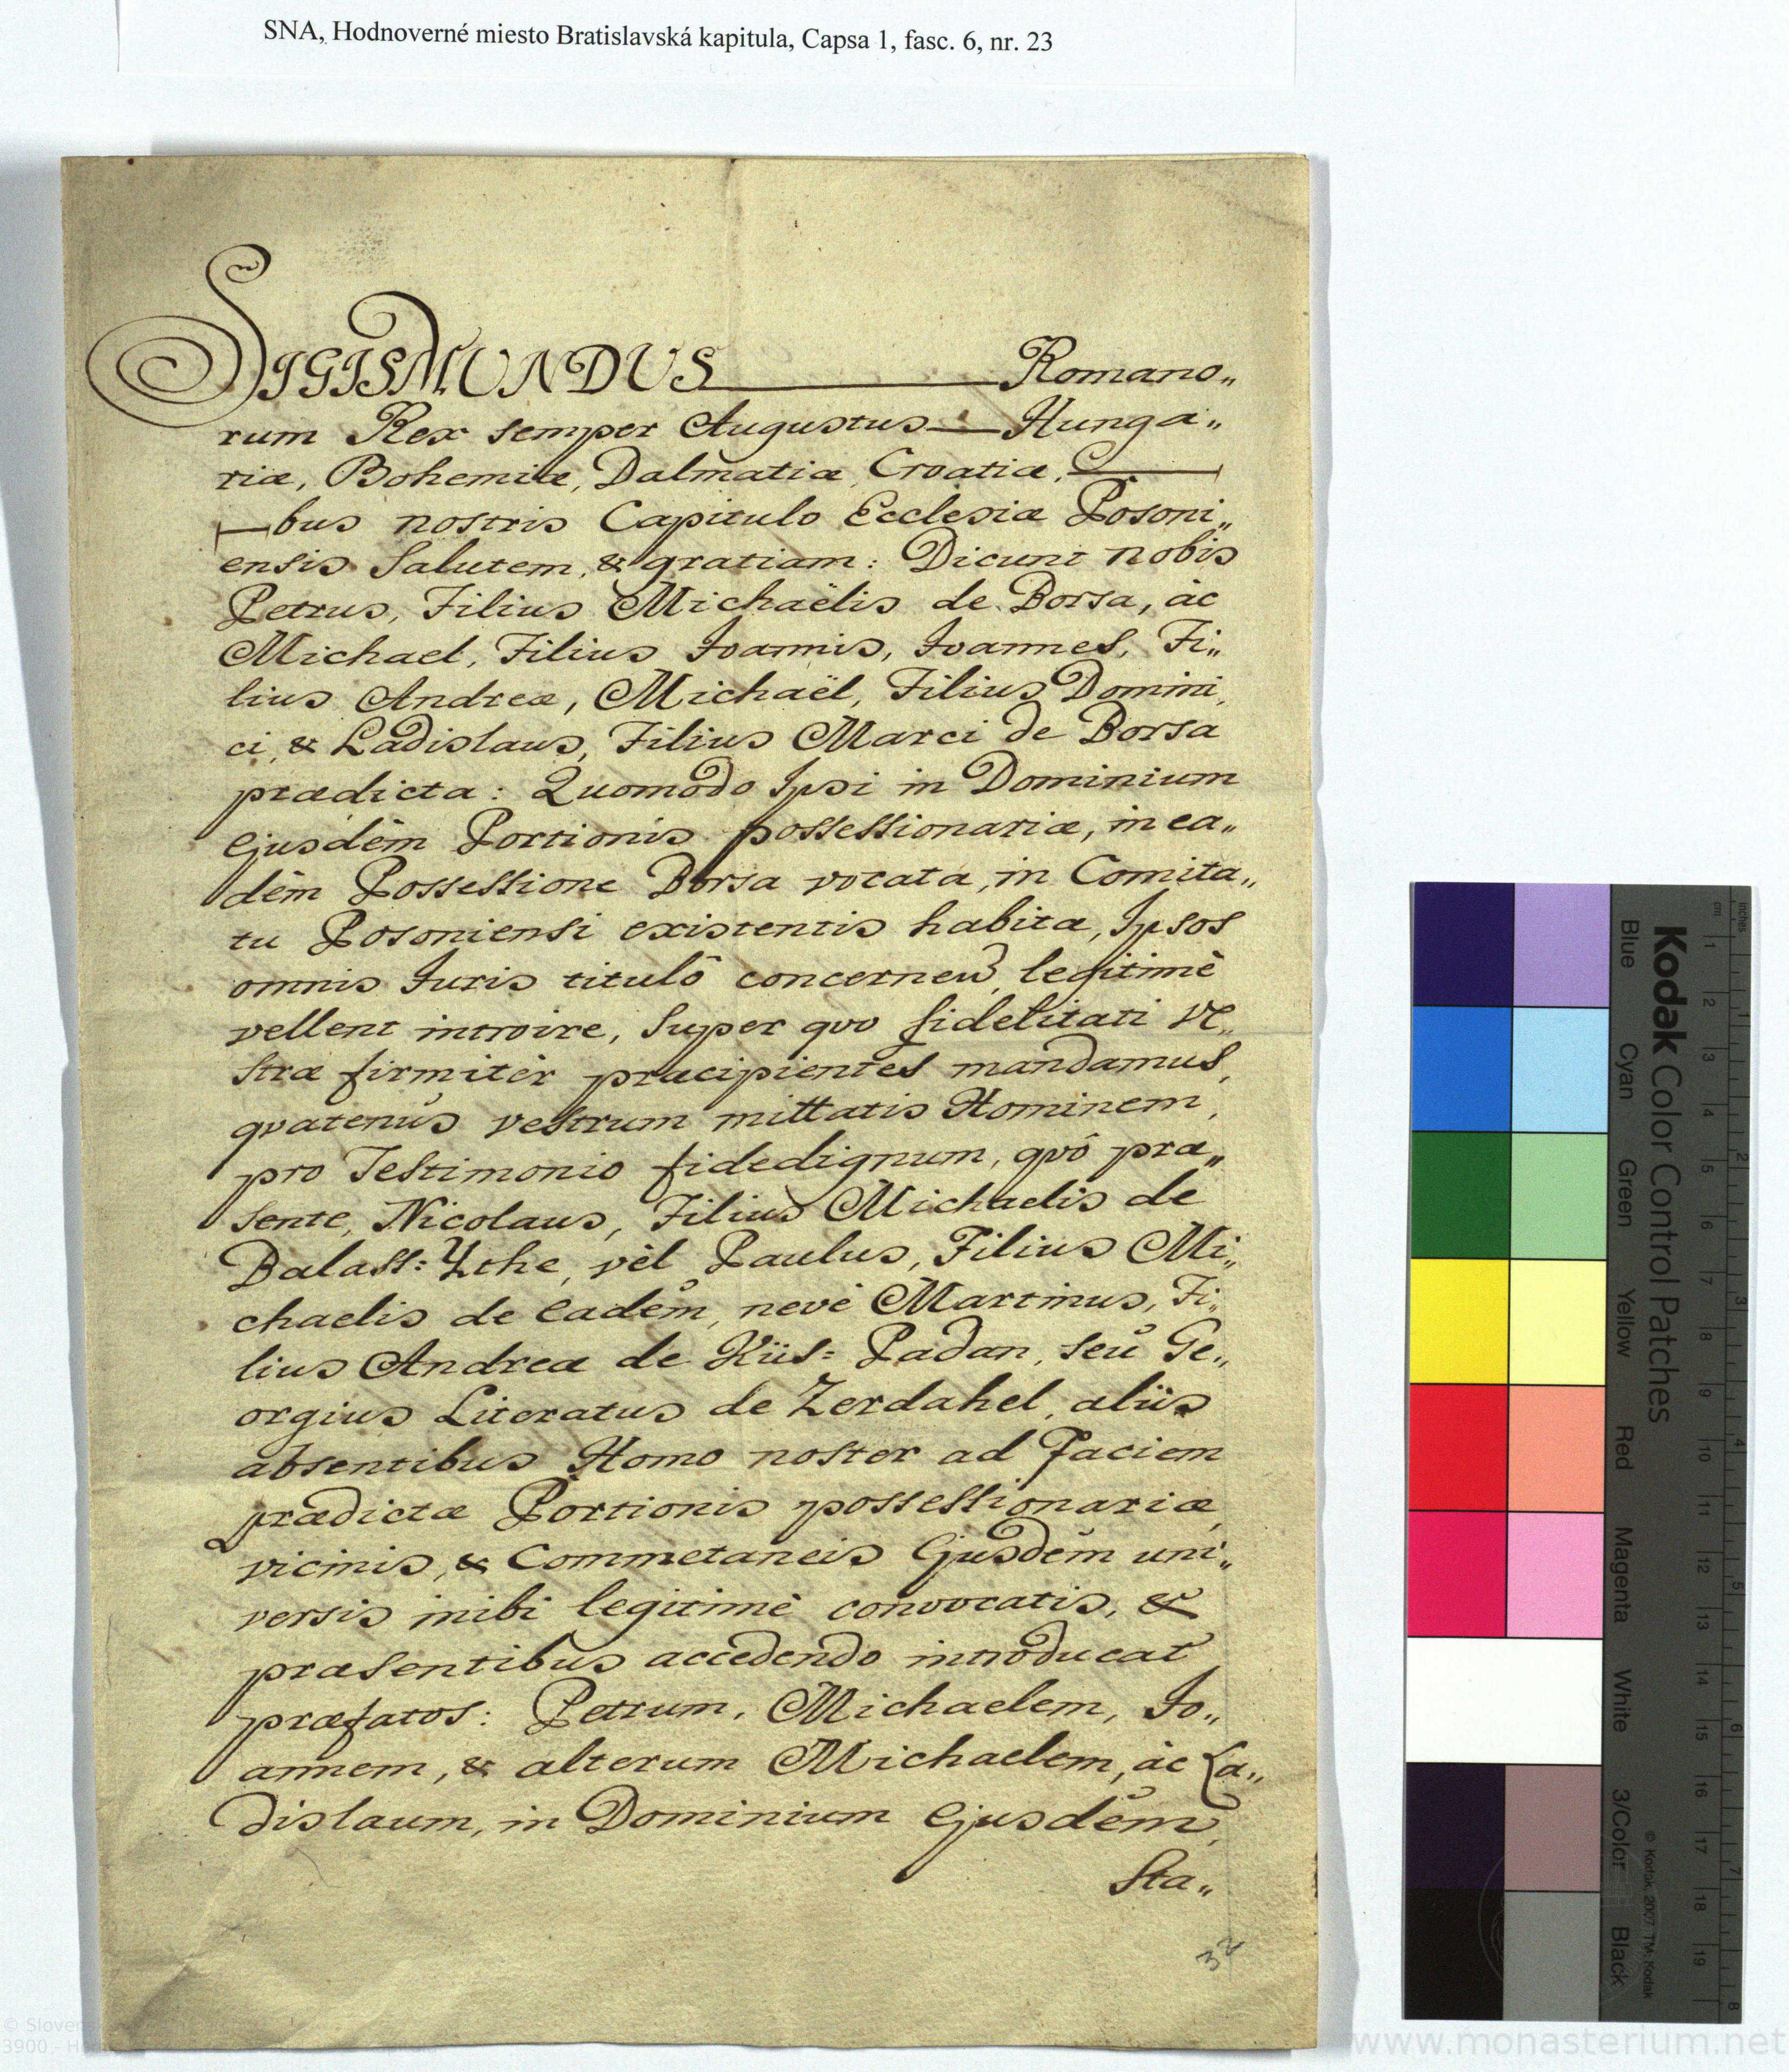 SNA, Hodnoverné miesto Bratislavská kapitula, Capsa 1, fasc. 6, nr. 23
SIGISMUNDUS Romano„
rum Rex semper Augustus Hunga„
riæ, Bohemiæ, Dalmatiæ Croatiæ,
bus nostris Capitulo Ecclesiæ Posoni„
ensis Salutem, & gratiam: Dicunt nobis
Petrus, Filius Michaëlis de Borsa, àc
Michael, Filius Joannis, Joannes, Fi„
lius Andreæ, Michaël, Filius Domini„
ci, & Ladislaus, Filius Marci de Borsa
prædicta: Quomodo Ipsi in Dominium
Ejusdèm Portionis possessionariæ, in ea„
dèm Possessione Borsa vocata, in Comita„
tu Posoniensi existentis habita, Ipsos
omnis Juris titulô concernen, legitimè
vellent introire, super qvo fidelitati ve„
stræ firmitèr præcipientes mandamus,
qvatenùs vestrum mittatis Hominem,
pro Testimonio fidedignum, qvô præ„
sente, Nicolaus, Filius Michaelis de
Balass: Ythe, vèl Paulus, Filius Mi„
chaelis de eadèm, nevè Martinus, Fi„
lius Andreæ de Kiis= Padan, seù Ge„
orgius Literatus de Zerdahel, aliis
absentibus Homo noster ad Faciem
prædictæ Portionis possessionariæ,
vicinis, & Commetaneis Ejusdèm uni„
versis inibi legitimè convocatis, &
præsentibus accedendo introducat
præfatos: Petrum, Michaelem, Jo„
annem, & alterum Michaelem, àc La„
dislaum, in Dominium Ejusdèm,
Sta„
32
Kodak Color Control Patches
Blue Cyan Green Yellow Red Magenta White 3/Color Black
© Kodak, 2007 TM: Kodak
inches 1 2 3 4 5 6 7 8
cm 1 2 3 4 5 6 7 8 9 10 11 12 13 14 15 16 17 18 19
www.monasterium.net